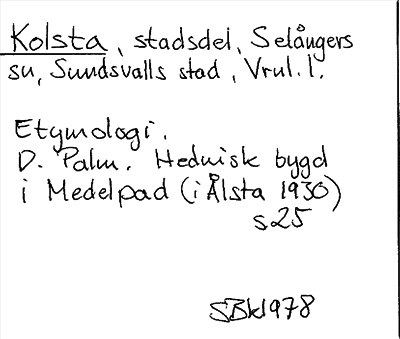 Kolsta, stadsdel, Selångers
sn, Sundsvalls stad, Vrul. l.
Etymologi.
D. Palm. Hednisk bygd
i Medelpad (i Ålsta 1930)
s 25
SBkl978